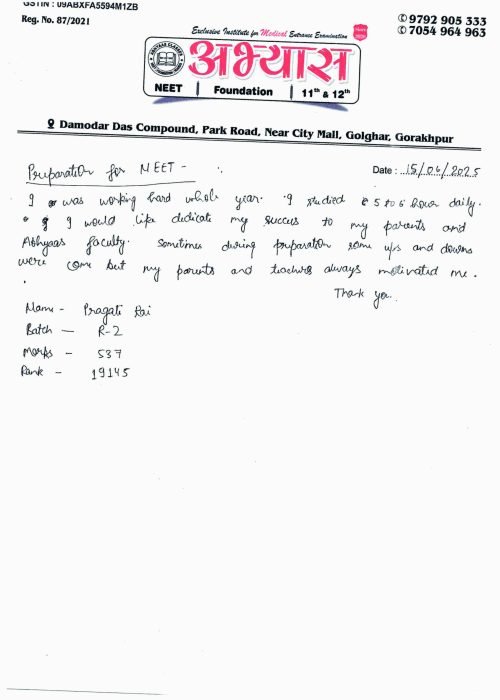 GSTIN : 09ABXFA5594M1ZB
Reg. No. 87/2021
✆ 9792 905 333
✆ 7054 964 963
Exclusive Institute for Medical Entrance Examination
अभ्यास
NEET | Foundation | 11th & 12th
Damodar Das Compound, Park Road, Near City Mall, Golghar, Gorakhpur
Preparation for NEET -
Date : 15/06/2025
I was working hard whole year. I studied 5 to 6 hour daily.
I would like dedicate my succes to my parents and
Abhyaas faculty. Sometimes during preparation some ups and downs
were come but my parents and teachers always motivated me.
Thank you.
Name - Pragati Rai
Batch - R-2
Marks - 537
Rank - 19145